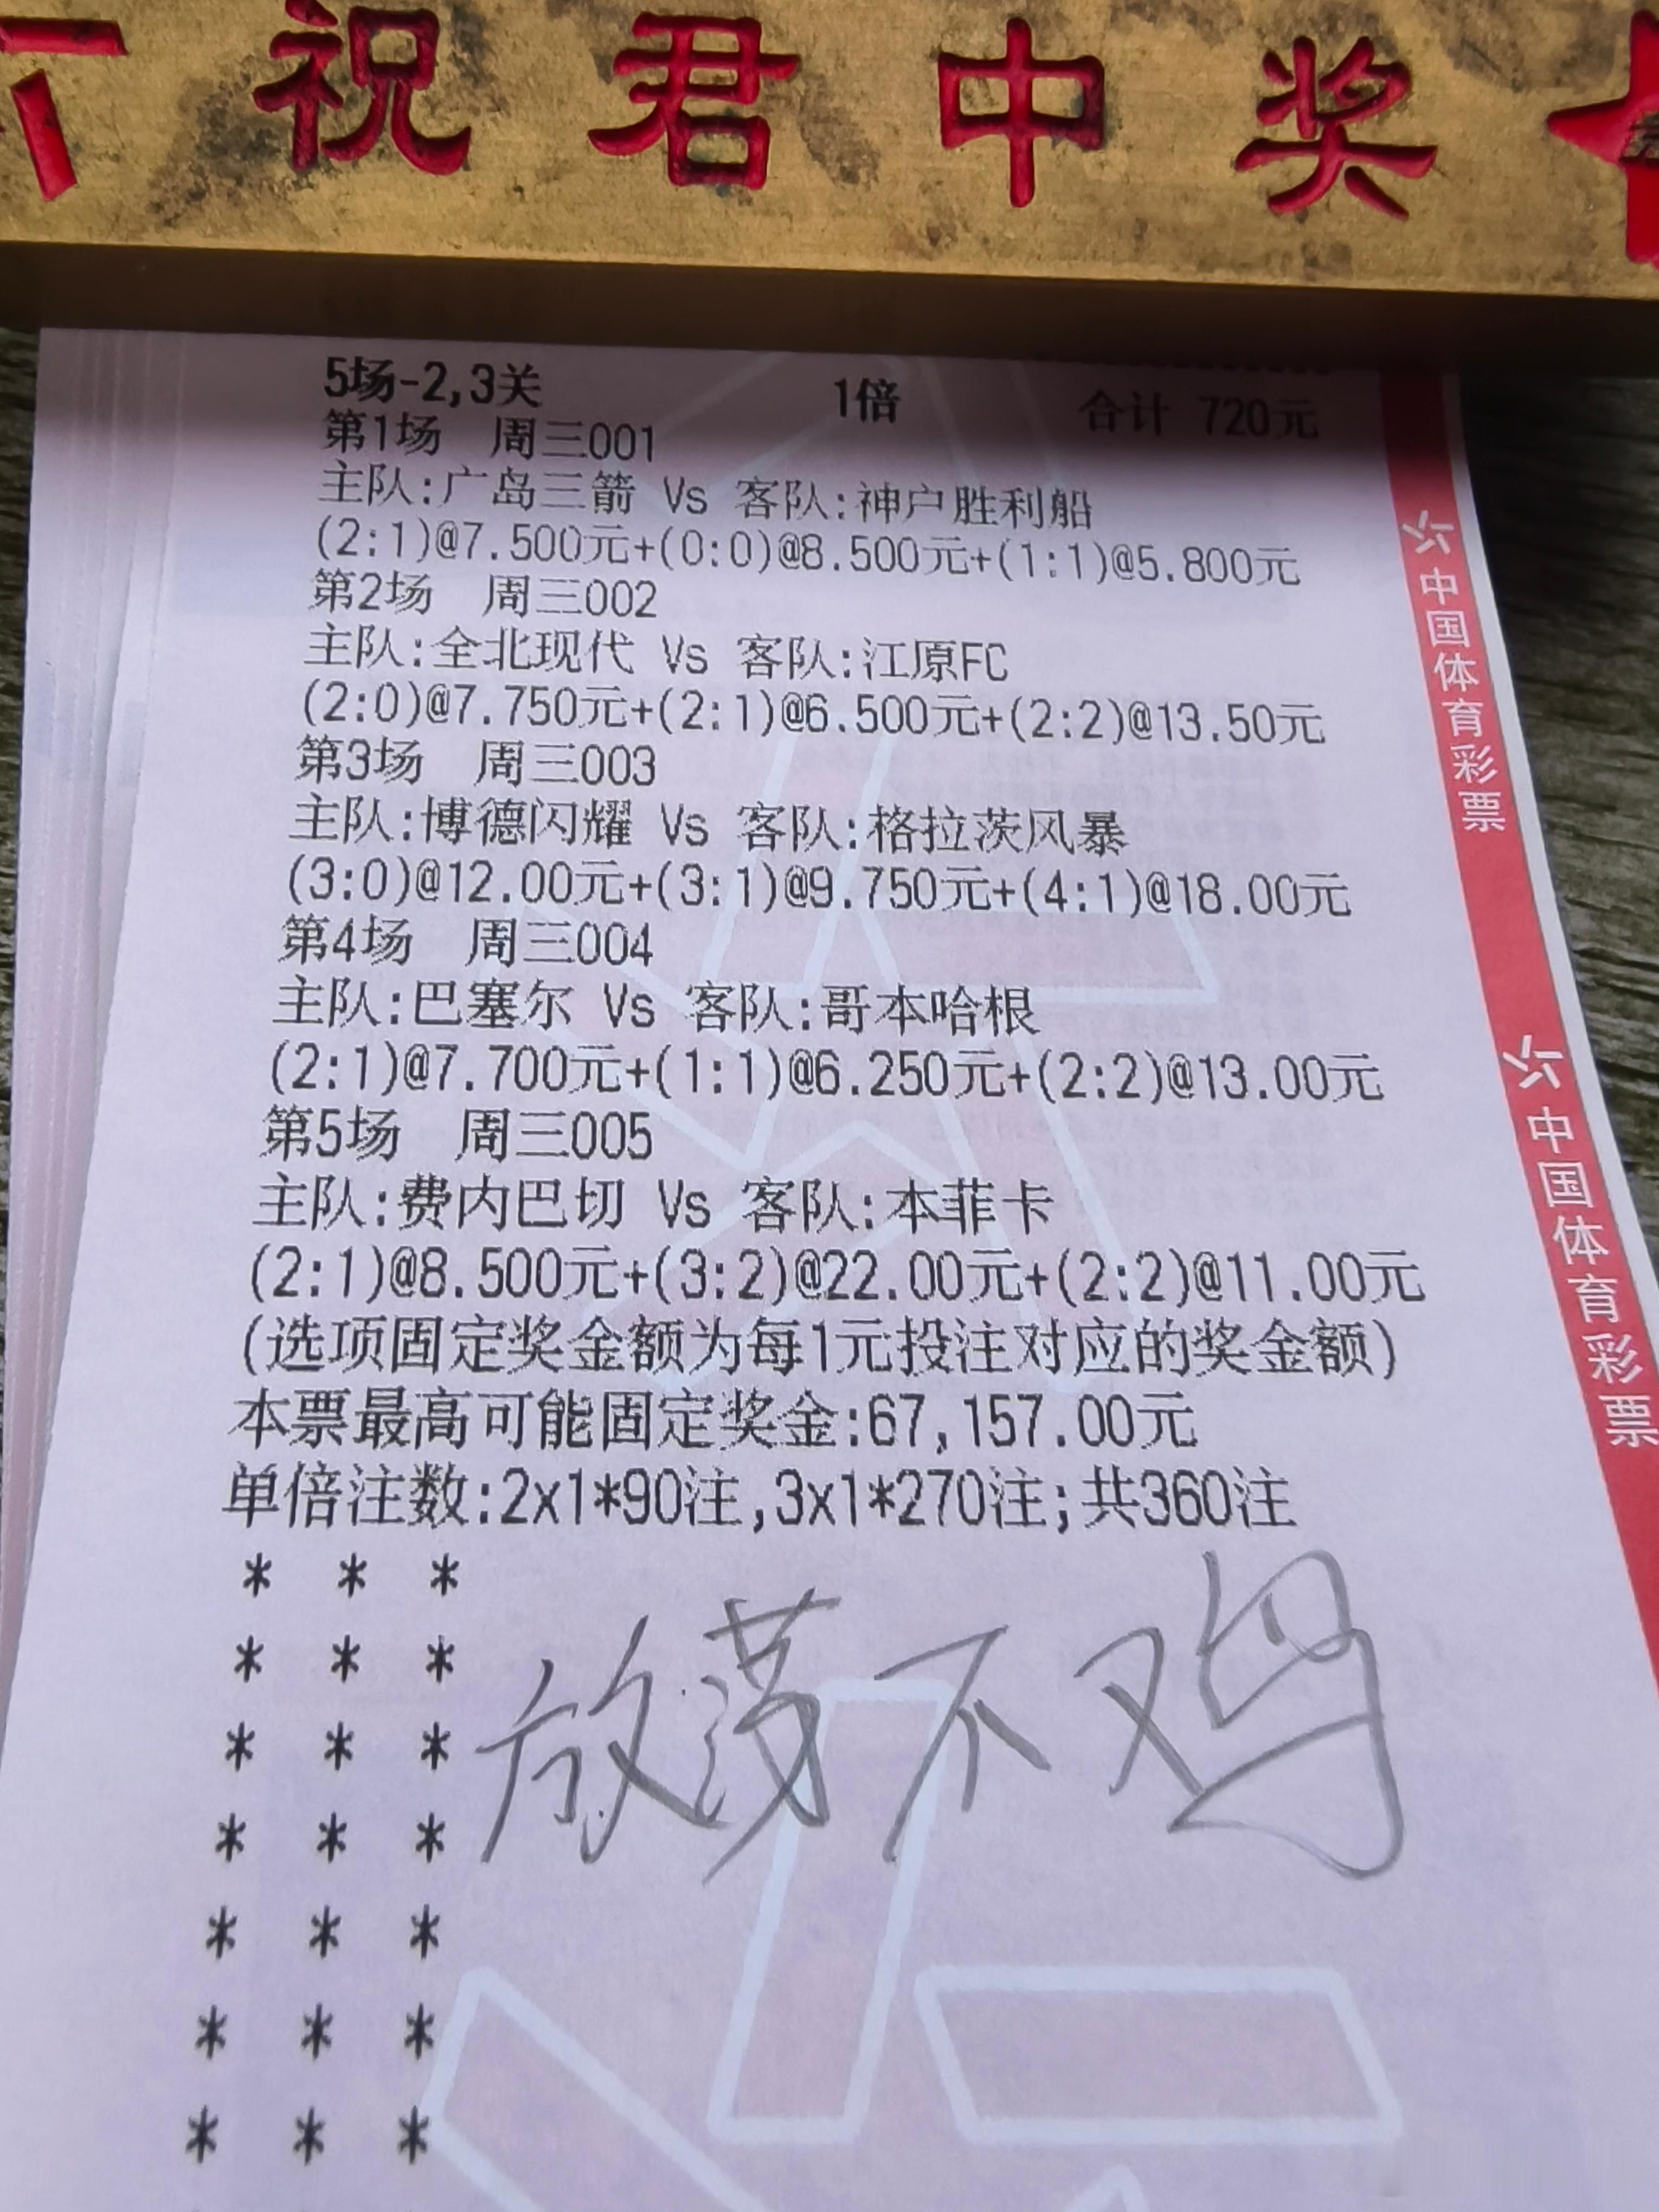 祝君中奖
5场-2,3关 1倍 合计 720元
第1场 周三001
主队:广岛三箭 Vs 客队:神户胜利船
(2:1)@7.500元+(0:0)@8.500元+(1:1)@5.800元
第2场 周三002
主队:全北现代 Vs 客队:江原FC
(2:0)@7.750元+(2:1)@6.500元+(2:2)@13.50元
第3场 周三003
主队:博德闪耀 Vs 客队:格拉茨风暴
(3:0)@12.00元+(3:1)@9.750元+(4:1)@18.00元
第4场 周三004
主队:巴塞尔 Vs 客队:哥本哈根
(2:1)@7.700元+(1:1)@6.250元+(2:2)@13.00元
第5场 周三005
主队:费内巴切 Vs 客队:本菲卡
(2:1)@8.500元+(3:2)@22.00元+(2:2)@11.00元
(选项固定奖金额为每1元投注对应的奖金额)
本票最高可能固定奖金:67,157.00元
单倍注数:2x1*90注,3x1*270注;共360注
* * *
* * *
* * *
* * *
* * *
* * *
* * *
放荡不鸡
中国体育彩票
中国体育彩票